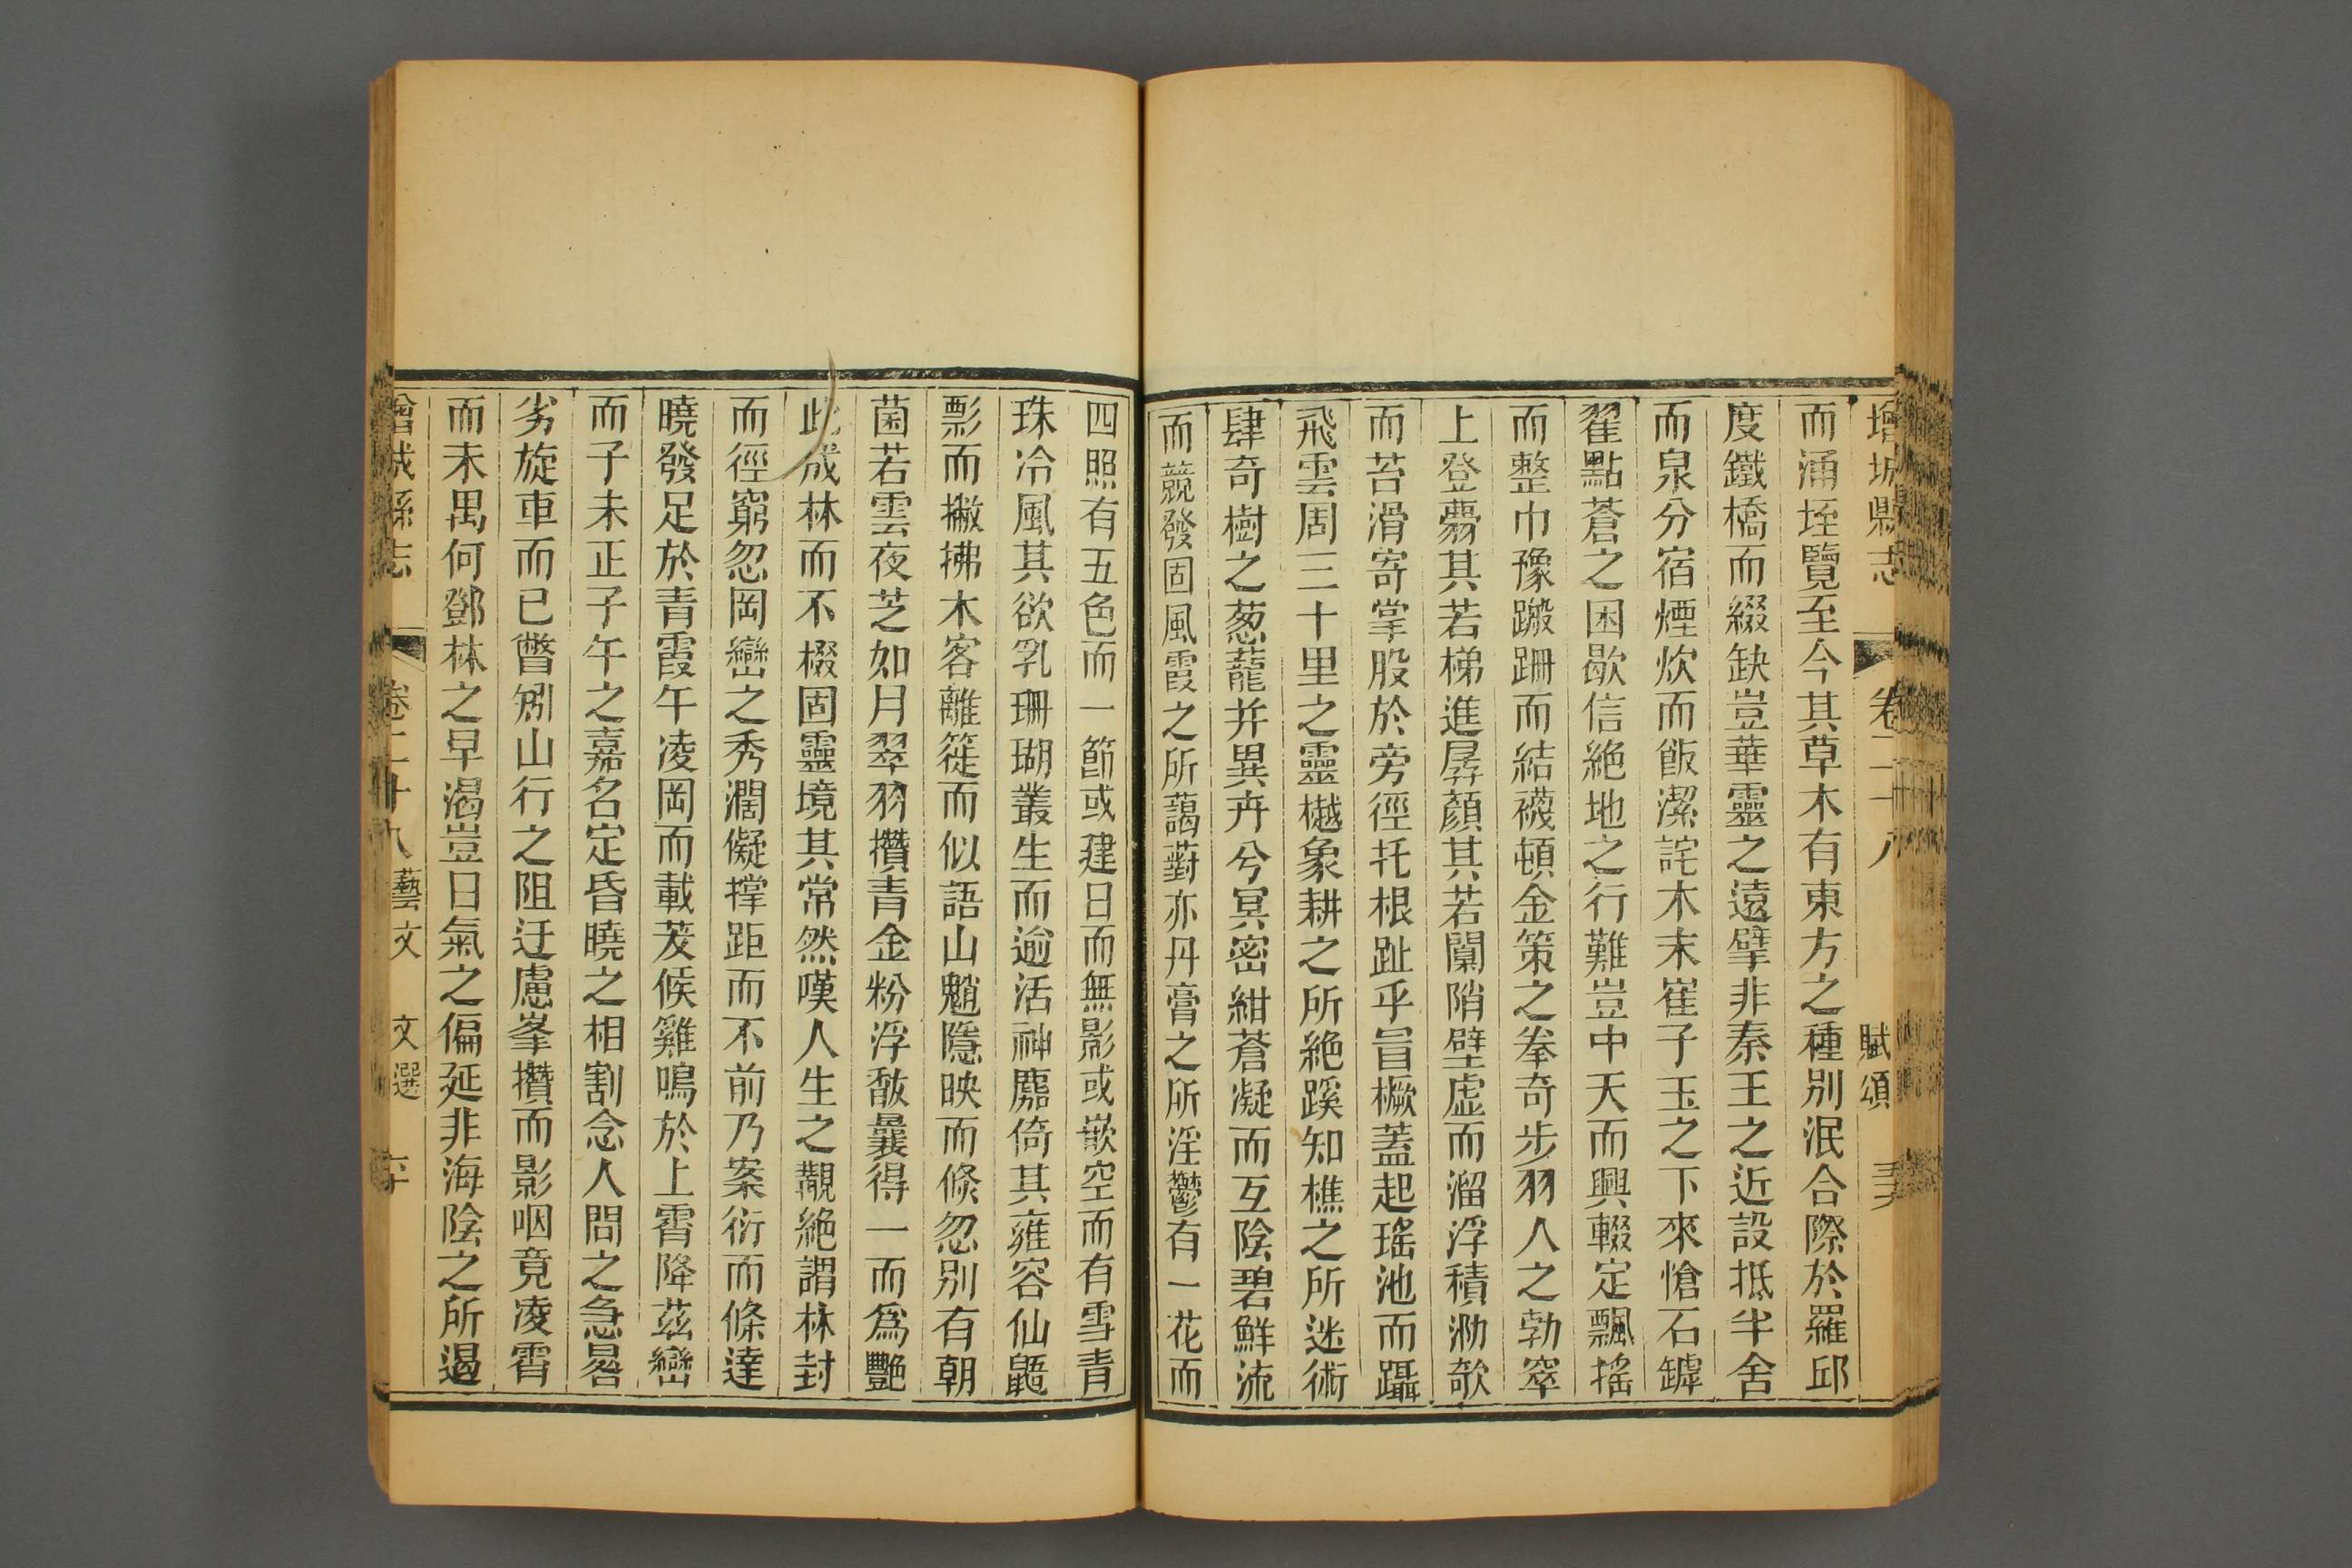 增城縣志 卷二十八 賦頌
而涌垤覽至今其草木有東方之種別泯合際於羅邱
度鐵橋而綴缺豈華靈之遠擘非秦王之近設抵半舍
而泉分宿煙炊而飯潔詫木末崔子玉之下來愴石罅
翟點蒼之困歇信絶地之行難豈中天而興輟定飄搖
而整巾豫蹣跚而結襪頓金策之拳奇步羽人之勃窣
上登蒭其若梯進孱顏其若闃陗壁虛而溜浮積泐欹
而苔滑寄掌股於旁徑托根趾乎盲橛蓋起瑤池而躡
飛雲周三十里之靈樾象耕之所絶蹊知樵之所迷術
肆奇樹之葱蘢并異卉兮冥密紺蒼凝而互陰碧鮮流
而競發固風霞之所藹薱亦丹膏之所淫鬱有一花而
四照有五色而一節或建日而無影或嵌空而有雪青
珠冷風其欲乳珊瑚叢生而逾活神麚倚其雍容仙鼯
影而撇拂木客離簁而似語山魈隱映而倏忽別有朝
菌若雲夜芝如月翠羽攢青金粉浮馛曩得一而爲艷
此成林而不掇固靈境其常然嘆人生之觀絶謂林封
而徑窮忽岡巒之秀濶儗撑距而不前乃案衍而倏達
曉發足於青霞午凌岡而載茇候雞鳴於上霄降茲巒
而子未正子午之嘉名定昏曉之相割念人間之急晷
劣旋車而已瞥矧山行之阻迂慮峯攢而影咽竟凌霄
而未禺何鄧林之早渴豈日氣之偏延非海陰之所遏
增城縣志 卷二十八 藝文 文選